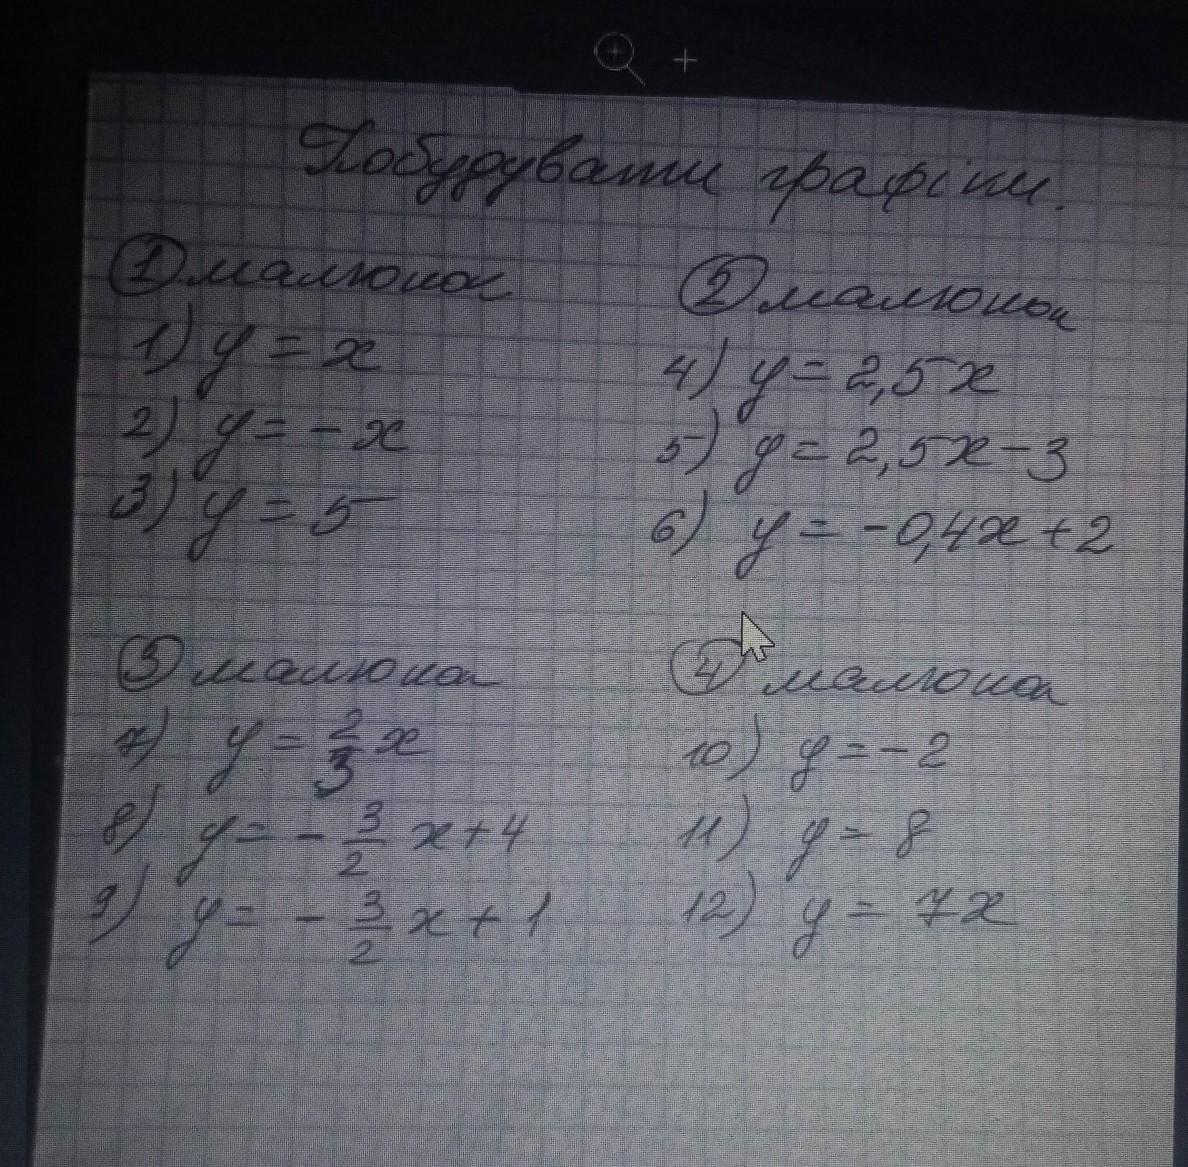 Побудувати графіки.
① малюнок
1) y = x
2) y = - x
3) y = 5
② малюнок
4) y = 2,5x
5) y = 2,5x - 3
6) y = - 0,4x + 2
③ малюнок
7) y = 2/3 x
8) y = - 3/2 x + 4
9) y = - 3/2 x + 1
④ малюнок
10) y = - 2
11) y = 8
12) y = 7x